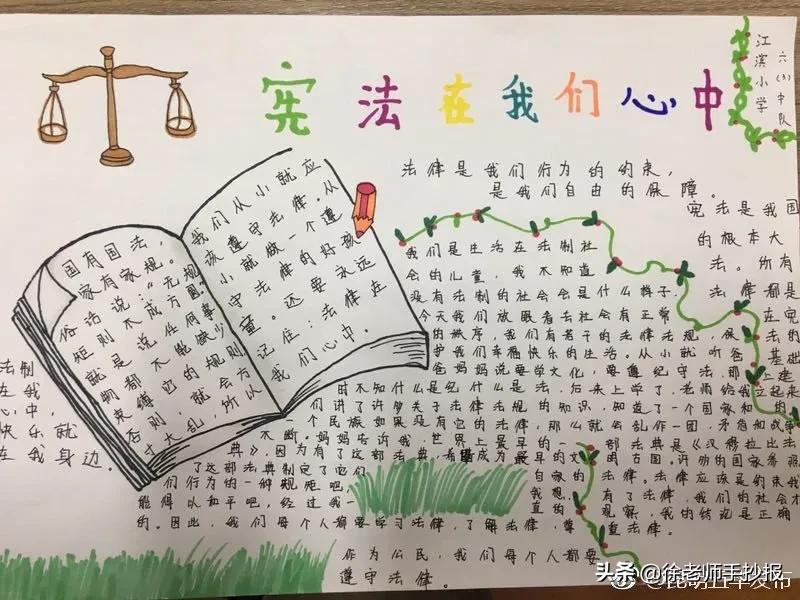 宪法在我们心中
江滨小学
六(3)中队
法律是我们行为的约束,
是我们自由的保障。
国有国法,
家有家规。
俗话说:“无规
矩则不成方圆”
就是说任何事
物都不能缺少
束缚它的规则
否则,就会方
寸大乱,所以
我们从小就应
该遵守法律。从
小就做一个遵
守法律的好孩
童。还要永远
记住:法律在
我们心中。
宪法是我国
的根本大
法。所有
法律都是
在宪
法的
基础
上建
立起来
的。
我们是生活在法制社
会的儿童,我不知道
没有法制的社会会是什么样子.
今天我们放眼看去社会有正常
的秩序,我们有若干的法律法规,保
护我们幸福快乐的生活。从小就听爸
爸妈妈说要学文化,要遵纪守法那
时不知什么是纪什么是法,后来上学了.老师给我
们讲了许多关于法律法规的知识,知道了一个国家和
一个民族如果没有它的法律,那么就会乱作一团,矛盾和战争
不断。妈妈告诉我,世界上最早的一部法典是《汉穆拉比法
典》,因为有了这部法典,希腊成为最早的文明古国。许多的国家参照
了这部法典制定了它们自家的法律。法律应该是约束我
们行为的一种规矩吧,我想,有了法律,我们的社会才
能得以和平吧,经过我一直的观察,我的结论是正确
的。因此,我们每个人都要学习法律,了解法律,尊重法律。
法制
在我
心中,
快乐就
在我身边。
作为公民,我们每个人都要
遵守法律。
头条 @徐老师手抄报